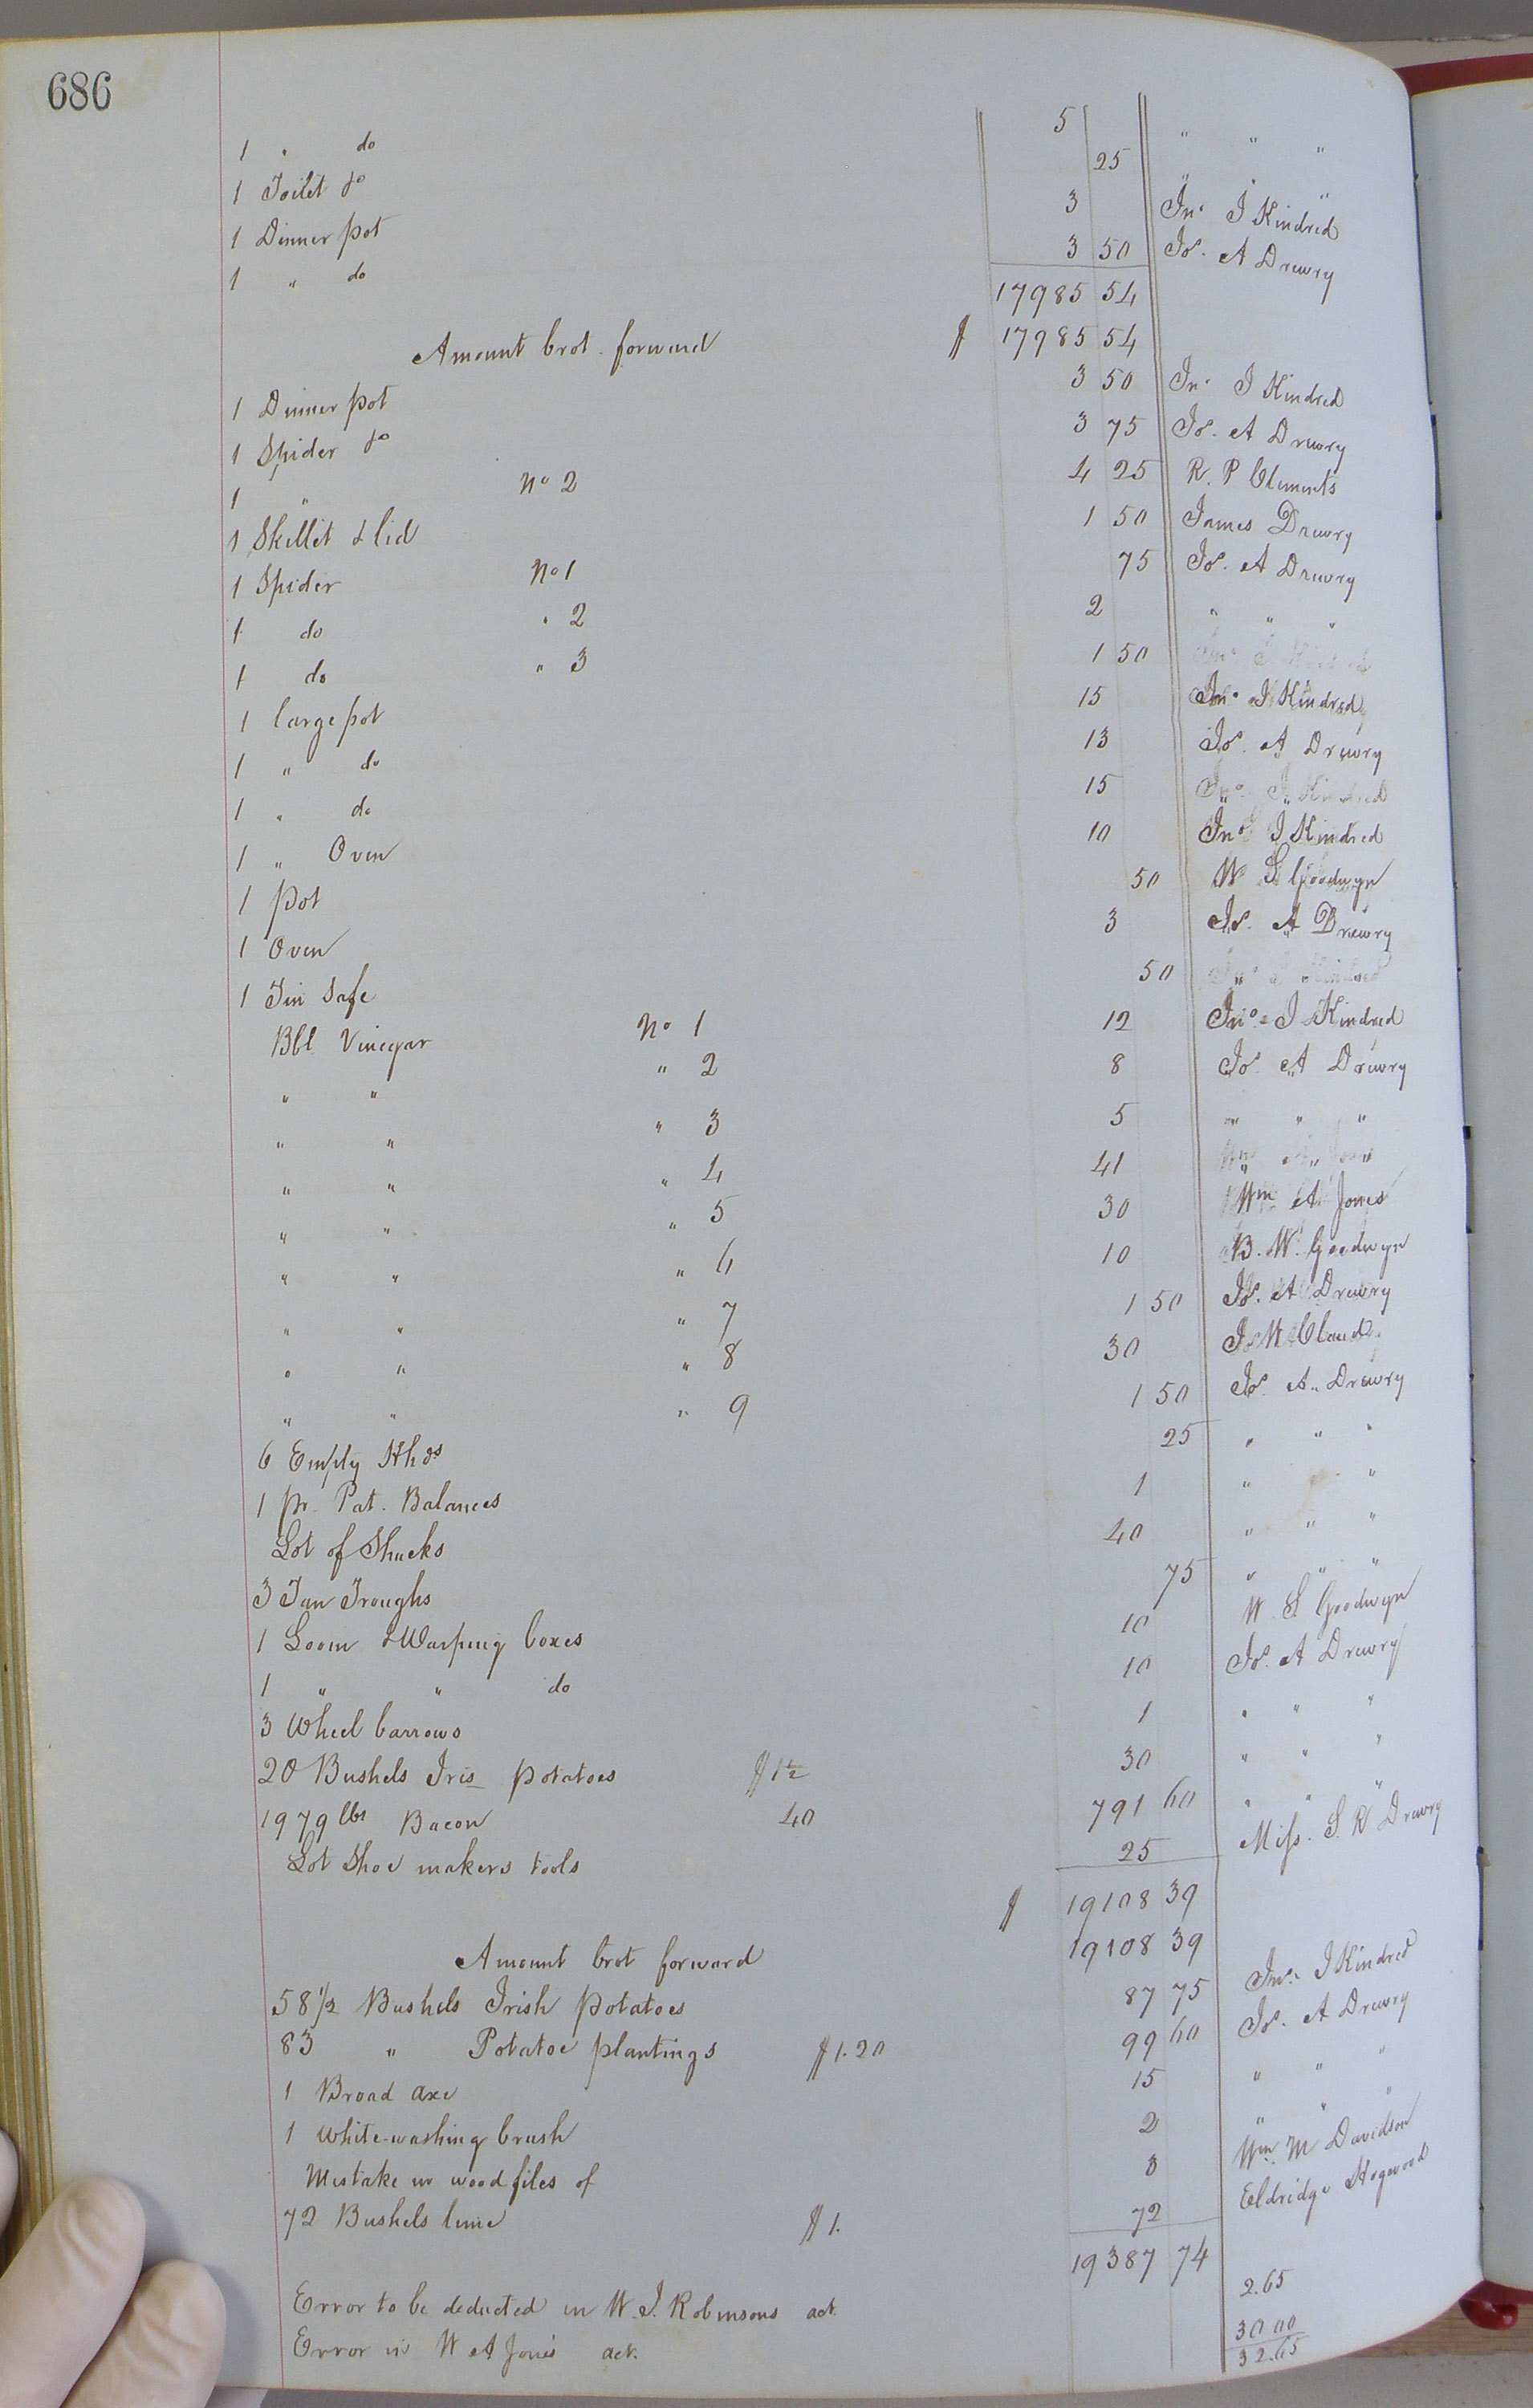 686
1 " do 5 " " "
1 Toilet do 25 " " "
1 Dinner pot 3 Jno J Kindred
1 " do 3 50 Jos. A Drewry
17985 54
Amount brot. forward $ 17985 54
1 Dinner pot 3 50 Jno J Kindred
1 Spider do 3 75 Jos. A Drewry
1 " No 2 4 25 R. P Clements
1 Skillit & lid 1 50 James Drewry
1 Spider No 1 75 Jos. A Drewry
1 do " 2 2 " " "
1 do " 3 1 50
1 large pot 15 Jno J Kindred
1 " do 13 Jos. A Drewry
1 " do 15 " "
1 " Oven 10 Jno J Kindred
1 pot 50 W S Goodwyn
1 Oven 3 Jos. A Drewry
1 Tin Safe 50 " "
Bbl Vinegar No 1 12 Jno J Kindred
" " " 2 8 Jos A Drewry
" " " 3 5 " " "
" " " 4 41 " " "
" " " 5 30 Wm A Jones
" " " 6 10 B. W. Goodwyn
" " " 7 1 50 Jos. A Drewry
" " " 8 30 Js W Claud
" " " 9 1 50 Jos. A. Drewry
6 Empty Hhds 25 " " "
1 pr. Pat. Balances 1 " " "
Lot of Shucks 40 " " "
3 Tan Troughs 75 " " "
1 Loom & Warping boxes 10 W. S Goodwyn
1 " " do 10 Jos. A Drewry
3 Wheel barrows 1 " " "
20 Bushels Iris potatoes $1½ 30 " " "
1979 lbs Bacon 40 791 60 " " "
Lot Shoe makers tools 25 Miss. S. R Drewry
$ 19108 39
Amount brot forward 19108 39
58 1/2 Bushels Irish potatoes 87 75 Jno. J Kindred
83 " Potatoe plantings $1.20 99 60 Jos. A Drewry
1 Broad axe 15 " " "
1 White-washing brush 2 " " "
Mistake in wood files of 3 Wm. M Davidson
72 Bushels lime $1. 72 Eldridge Hogwood
19387 74
Error to be deducted in W. J. Robinsons act. 2.65
Error in W A Jones act. 30 00
32.65